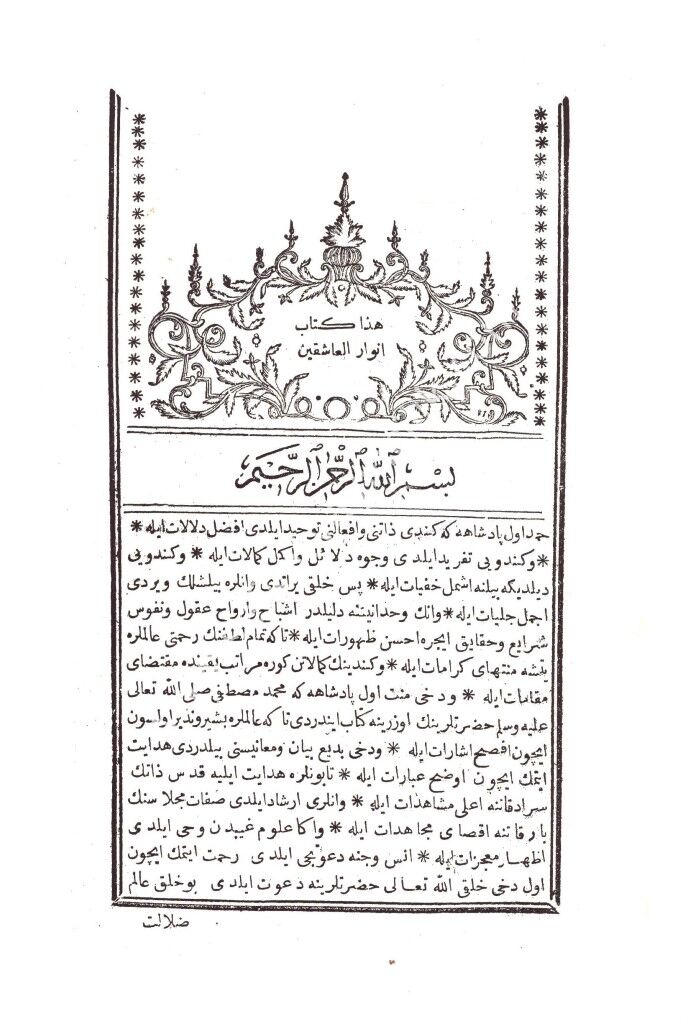 هذا كتاب
انوار العاشقين
بسم الله الرحمن الرحيم
حمد اول پادشاهه كه كندى ذاتنى وافعالنى توحيد ايلدى افضل دلالات ايله *
* وكندوبى تفريد ايلدى وجوه دلائل واكمل كمالات ايله * وكندوبى
ديلديكه بيلنه اشمل خفيات ايله * پس خلقى براتدى وانلره بيلشلك ويردى
اجمل جليات ايله * وانك وحدانيتنه دليلدر اشباح وارواح عقول ونفوس
شرايع وحقايق ايچره احسن ظهورات ايله * تاكه تمام لطفنك رحمتى عالملره
يتيشه منتهاى كرامات ايله * وكندينك كمالاتن كوره مراتب يقينده مقتضاى
مقامات ايله * ودخى منت اول پادشاهه كه محمد مصطفى صلى الله تعالى
عليه وسلم حضرتلرينك اوزرينه كتاب ايندردى تا كه عالملره بشير ونذير اولسون
ايچون افصح اشارات ايله * ودخى بديع بيان ومعانيسنى بيلدردى هدايت
ايتمك ايچون اوضح عبارات ايله * تا بونلره هدايت ايليه قدس ذاتك
سرادقاتنه اعلى مشاهدات ايله * وانلرى ارشاد ايلدى صفات مجلاسنك
بارقاتنه اقصاى مجاهدات ايله * واكا علوم غيبدن وحى ايلدى
اظهار معجزات ايله * انس وجنه دعوتجى ايلدى رحمت ايتمك ايچون
اول دخى خلقى الله تعالى حضرتلرينه دعوت ايلدى بو خلق عالم
ضلالت